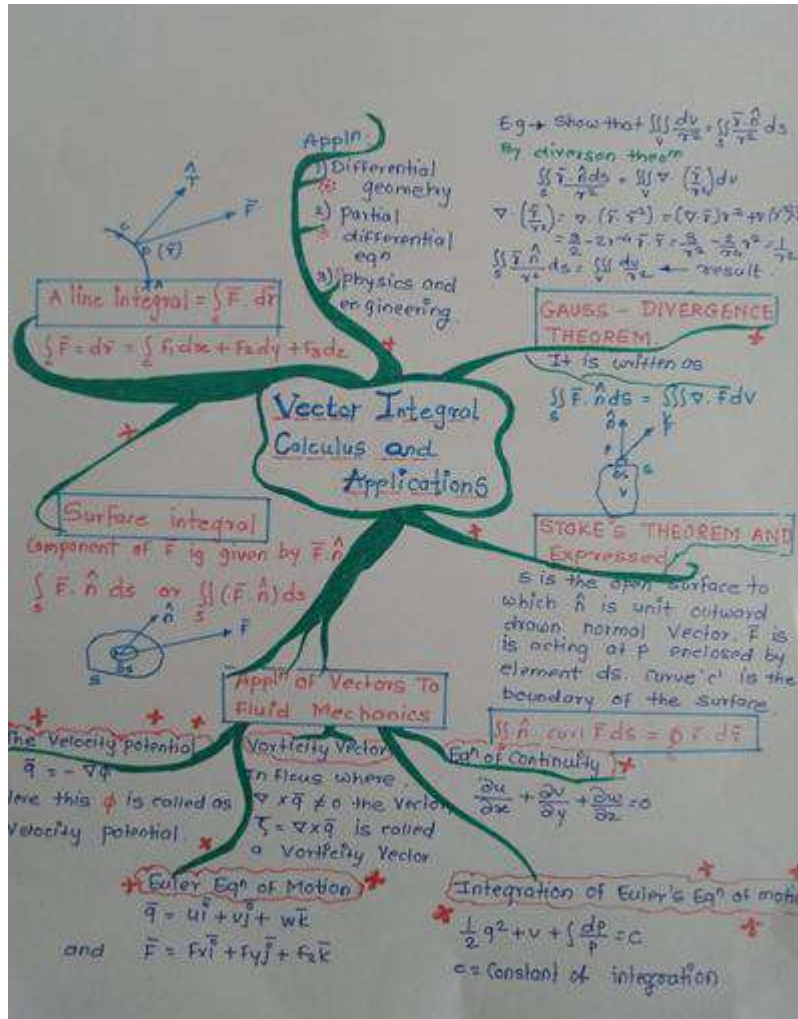 Vector Integral
Calculus and
Applications
Appln.
1) Differential
geometry
2) partial
differential
eqn
3) physics and
engineering.
Eg → Show that ∭_V dv/r² = ∬_S r̄.n̂/r² ds
By diverson theom
∬_S r̄.n̂ds/r² = ∭_V ∇.(r̄/r²)dv
∬_S r̄.n̂/r² ds = ∭_V dv/r² ← result.
GAUSS - DIVERGENCE
THEOREM.
It is written as
∬_S F̄.n̂ds = ∭ ∇.F̄dV
n̂
F̄
P
δs
S
V
STOKE'S THEOREM AND
Expressed
S is the open surface to
which n̂ is unit outward
drawn normal Vector. F̄ is
is acting at P enclosed by
element ds. curve 'c' is the
boundary of the surface.
∬ n̂. curl F̄ds = ∮_c F̄.dr̄
r̂
F̄
c
P(r̄)
A
A line integral = ∫_c F̄.dr̄
∫_c F̄ = dr̄ = ∫_c F₁dx + F₂dy + F₃dz
Surface integral
Component of F̄ ig given by F̄.n̂
∫_S F̄.n̂ ds or ∬_S (F̄.n̂)ds
n̂
F̄
δs
S
Applⁿ of Vectors To
Fluid Mechanics
The Velocity potential
q̄ = -∇ϕ
this ϕ is called as
Velocity potential.
Vorticity Vector
In where
∇×q̄ ≠ 0 the Vector
ζ = ∇×q̄ is called
a Vorticity Vector
Eqⁿ of Continuity
∂u/∂x + ∂v/∂y + ∂w/∂z = 0
Euler Eqⁿ of Motion
q̄ = uī + vj̄ + wk̄
and F̄ = Fxī + Fyj̄ + Fzk̄
Integration of Euler's Eqⁿ of
½q² + v + ∫dp/ρ = c
c = Constant of integration